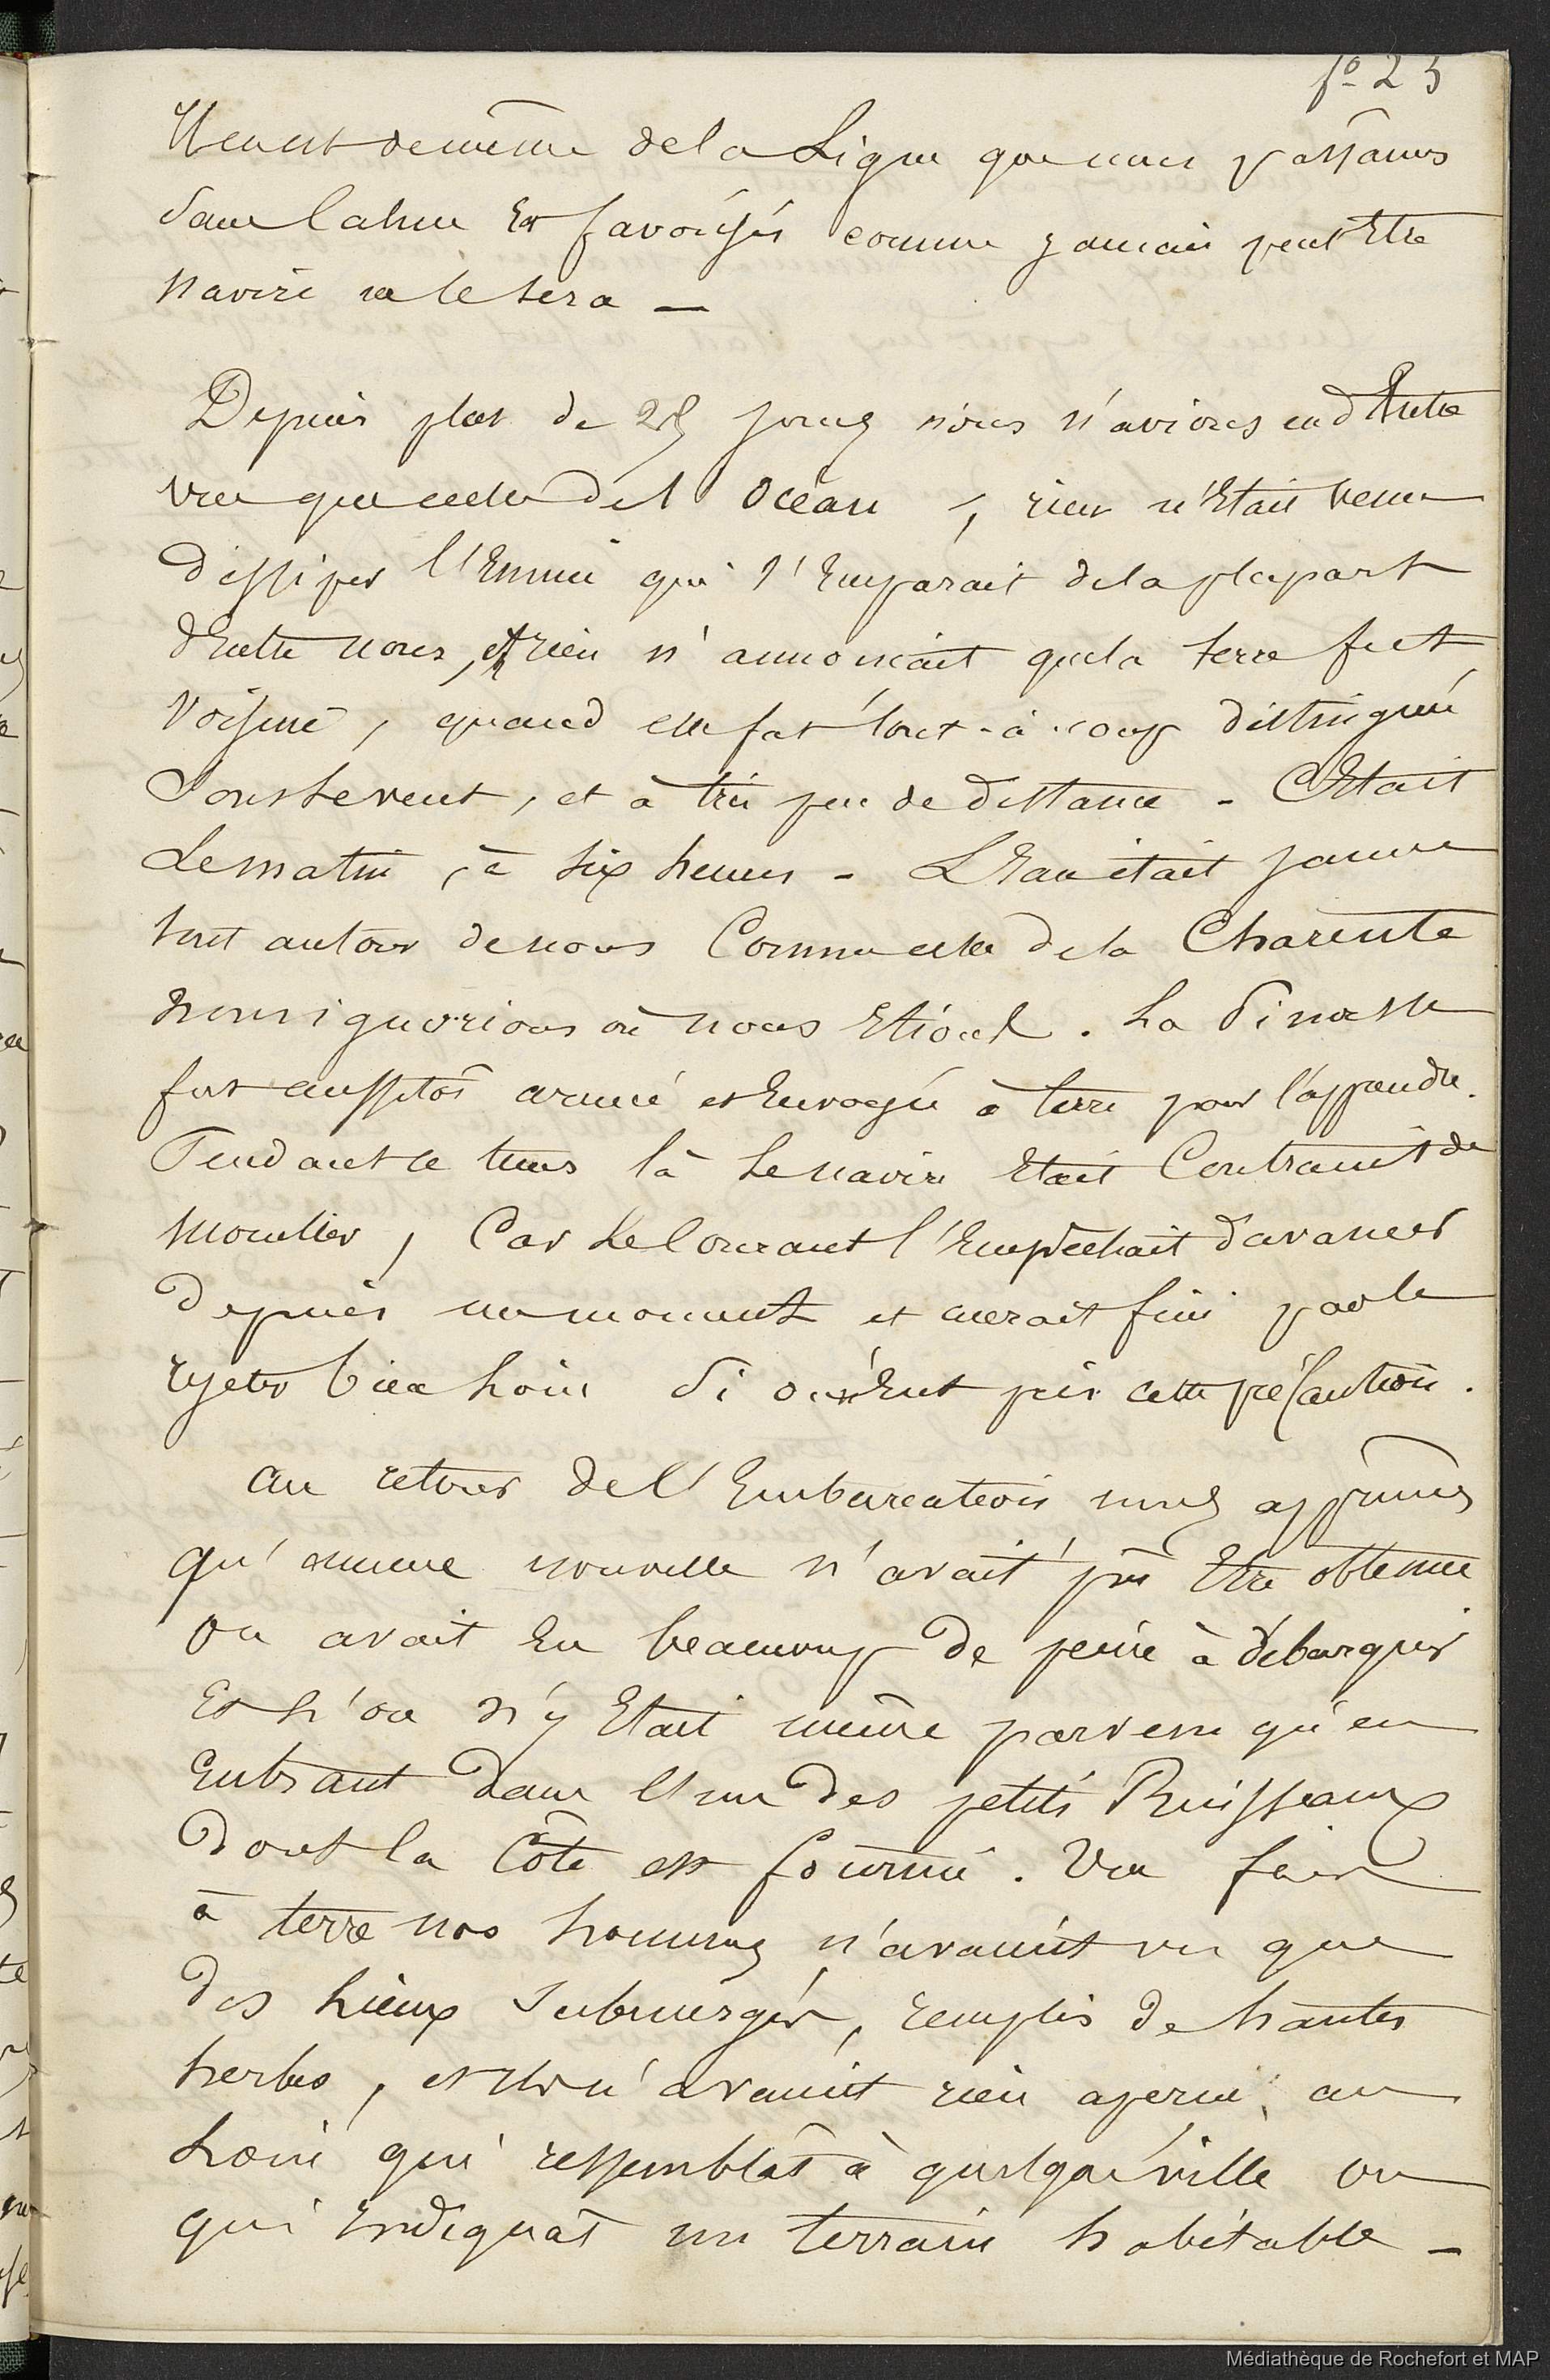 fo 23
Il en est de même de la Ligne que nous passâmes
sans calme Et favorisés comme jamais peut Etre
navire ne le sera —
Depuis plus de 25 jours nous n'avions eu d'Autre
vue que celle del Océan, rien n'Etait venu
dissiper l'Ennui qui s'Emparait dela plupart
d'Entre nous, et rien n'annonçait que la terre fut
Voisine, quand elle fut tout-à-coup distinguée
Sous le vent, et à très peu de distance - C'Etait
Le matin, à six heures - L'Eau était jaune
tout autour de nous Comme celle dela Charente
nous ignorions où nous Etions. La Pinasse
fut aussitôt armée et Envoyée à terre pour l'apprendre.
Pendant ce tems là Le navire Etait Contraint de
mouiller, Car Le Courant l'Empêchait d'avancer
depuis un moment et aurait fini par le
rejeter bien Loin Si on n'Eut pris cette précaution.
au retour de l'Embarcation nous apprîmes
qu'aucune nouvelle n'avait pû Etre obtenue
on avait Eu beaucoup de peine à débarquer
Et l'on n'y Etait même parvenu qu'en
Entrant dans l'un des petits Ruisseaux
dont la Côte est fournie. Une fois
à terre nos hommes n'avaient vu que
des Lieux Submergés, remplis de hautes
herbes, et ils n'avaient rien aperçu au
Loin qui ressemblât à quelque ville ou
qui Indiquât un terrain habitable -
Médiathèque de Rochefort et MAP